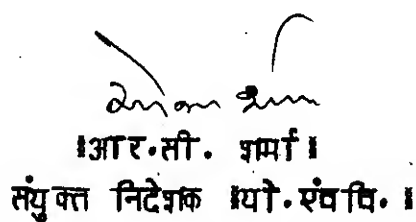 ॥आर.सी. शर्मा॥
संयुक्त निदेशक ॥यो.एंव वि.॥